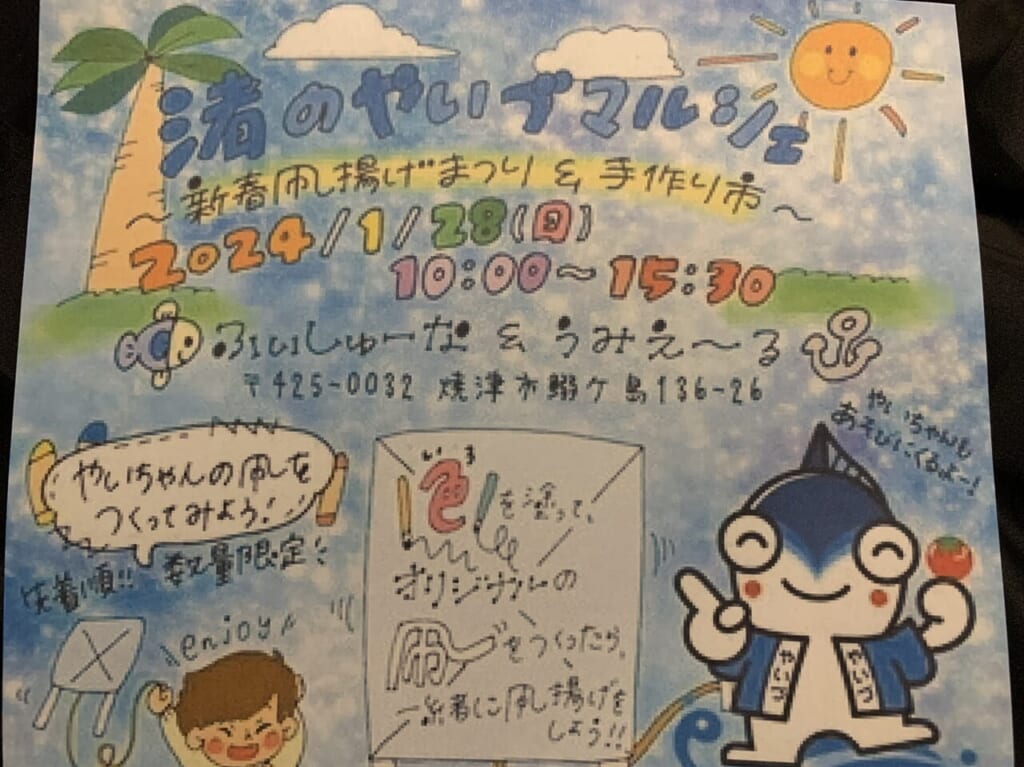 渚のやいづマルシェ
〜新春凧揚げまつり&手作り市〜
2024/1/28(日)
10:00〜15:30
ふぃしゅーな & うみえ〜る
〒425-0032 焼津市鰯ケ島136-26
やいちゃんも
あそびにくるよー!
やいちゃんの凧を
つくってみよう!
先着順!! 数量限定
enjoy
いろ
色を塗って、
オリジナルの
凧をつくったら、
一緒に凧揚げを
しよう!!
やいづ
やいづ